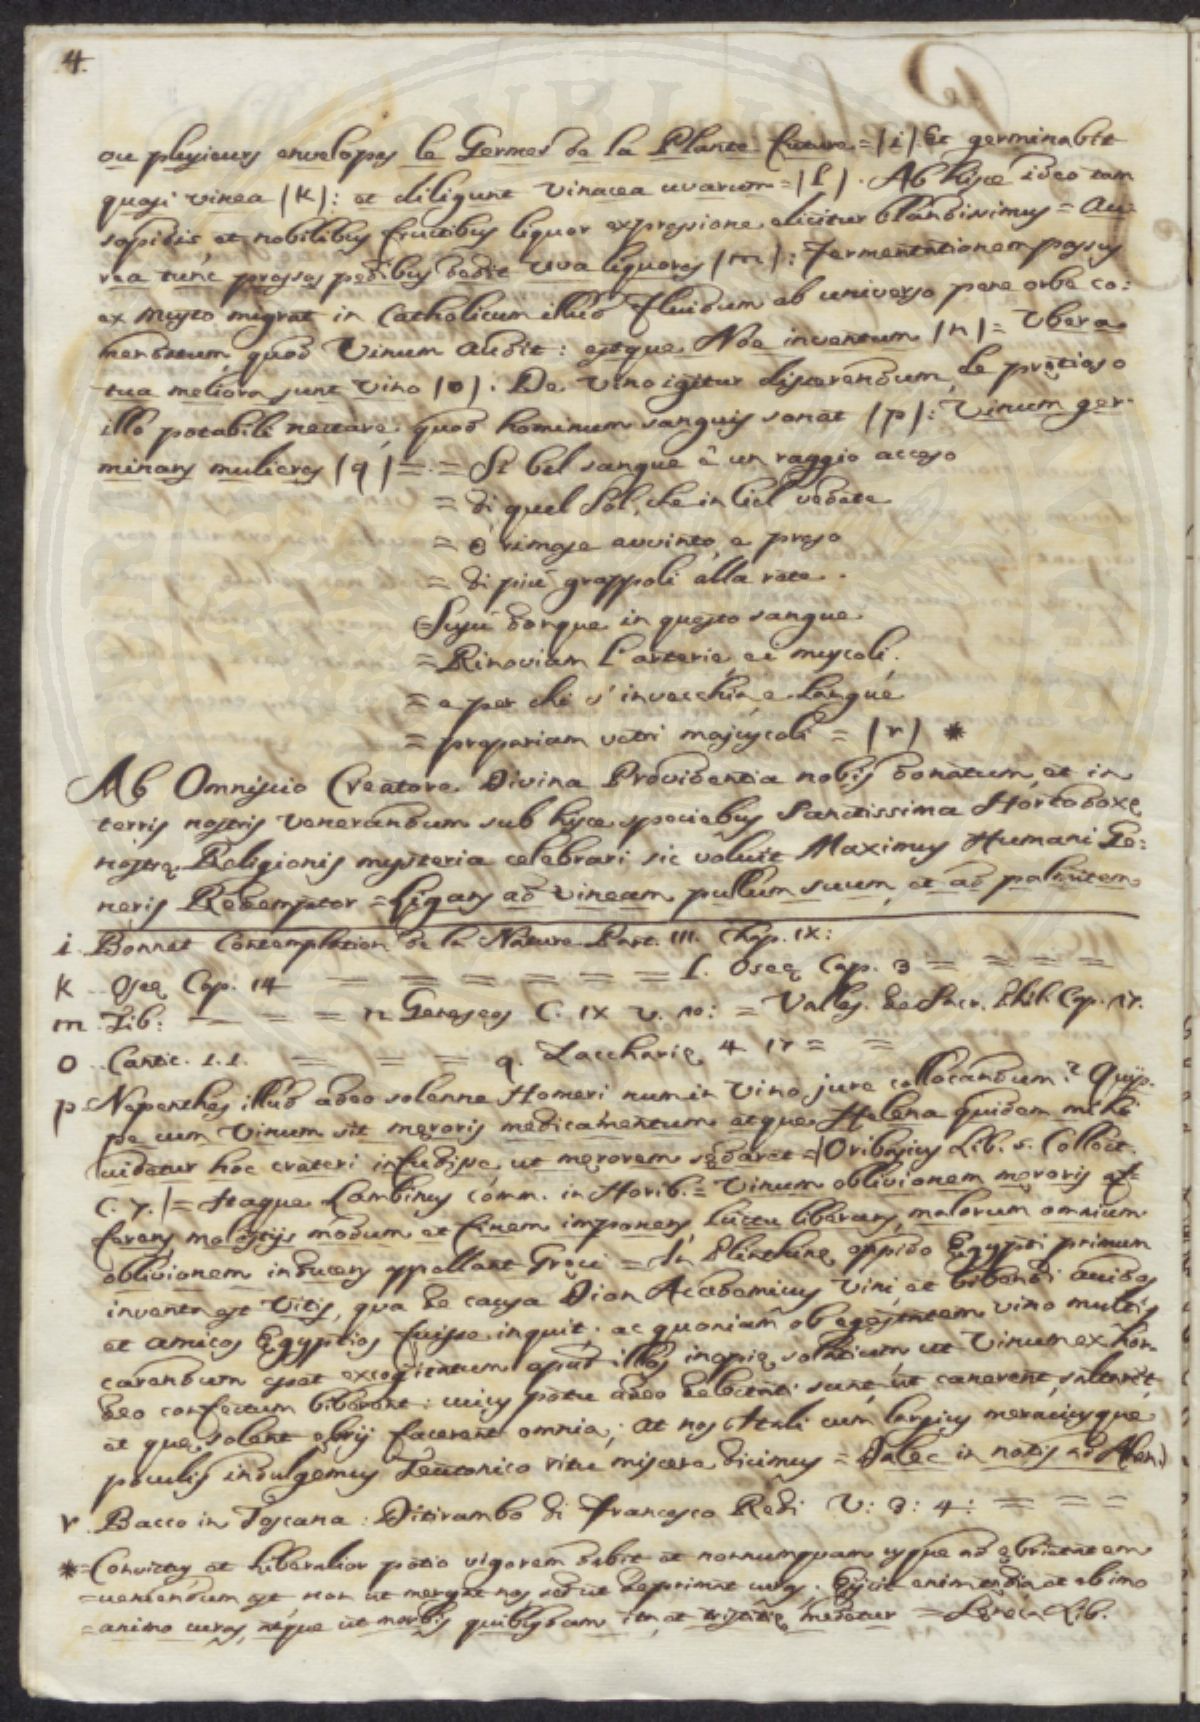 4.
ou plusieurs envelopes le Germes de la Plante future = |i| Et germinabit
quasi vinea |k|: et diligunt vinacea uvarum = |l|. Ab hisce ideo tam
sapidis et nobilibus fructibus liquor expressione elicitur blandissimus = Au:
rea tunc pressos pedibus dedit uva liquores |m|: Fermentationem passus
ex Musto migrat in Catholicum illud fluidum ab universo pene orbe co:
mendatum, quod Vinum audit: estque Noe inventum |n| = Ubera
tua meliora sunt vino |o|. De Vino igitur disserendum, de pretioso
illo potabili nectare, quod hominum sanguis sonat |p|: Vinum ger:
minans mulieres |q| = = Si bel sangue è un raggio acceso
= di quel Sol, che in Ciel vedete
= e rimase avvinto, e preso
= di più grappoli alla rete.
= Susù donque in questo sangue
= Rinoviam l'arterie, e i muscoli.
= e per chi s'invecchia, e langue
= prepariam vetri majuscoli = |r| *
Ab Omniscio Creatore Divina Providentia nobis donatum, et in
terris nostris venerandum sub hisce speciebus Sanctissima Hortodoxę
nostrę Religionis mysteria celebrari sic voluit Maximus Humani Ge:
neris Redemptor = ligans ad vineam pullum suum, et ad palmitem
i. Bonnet Contemplation de la Nature Part. III. Chap. IX:
k. Oseę Cap. 14 = = = = = = = l. Oseę Cap. 3 = = = =
m. Tib: = = = = n Geneseos C. IX v. 20: = Valles. de Sacr. Phil. Cap. 17.
o. Cantic. 1. 1. = = = = q. Zaccharię 4 17 = =
p = Nepenthes illud adeo solenne Homeri num in Vino jure collocandum? Quip.
pe cum Vinum sit męroris medicamentum atque Helena quidem mihi
videtur hoc crateri infudisse, ut męrorem sedaret = |Oribasius Lib. 5. Collect.
C. 7.| = Itaque Lambinus comm. in Horib. = Vinum oblivionem męroris af=
ferens, molestijs modum et finem imponens, luctu liberans, malorum omnium
oblivionem inducens appellant Gręci = In Plinthine oppido Ęgypti primum
inventa est Vitis, qua de causa Dion Academicus vini, et bibendi avidos
et amicos Ęgyptios fuisse inquit; ac quoniam ob egestatem vino multis
carendum esset excogitatum apud illos inopię solatium, ut Vinum ex hor-
deo confectum biberent: cuius potu adeo delectati sunt, ut canerent, saltarent,
et quę solent ebrij facerent omnia; At nos Itali cum largius meraciusque
poculis indulgemus Teutonico ritu miscere dicimus = Dalec. in notis ad Athen.)
r. Bacco in Toscana: Ditirambo di Francesco Redi V: 3: 4: = = =
* = Convictus et liberalior potio vigorem dabit et nonnumquam usque ad ębrietatem
= veniendum est non ut mergat nos, sed ut deprimat curas. Ejicit enim tędia et ab imo
= animo curas, atque ut morbis quibusdam ita et tristitię medetur = Seneca Lib.